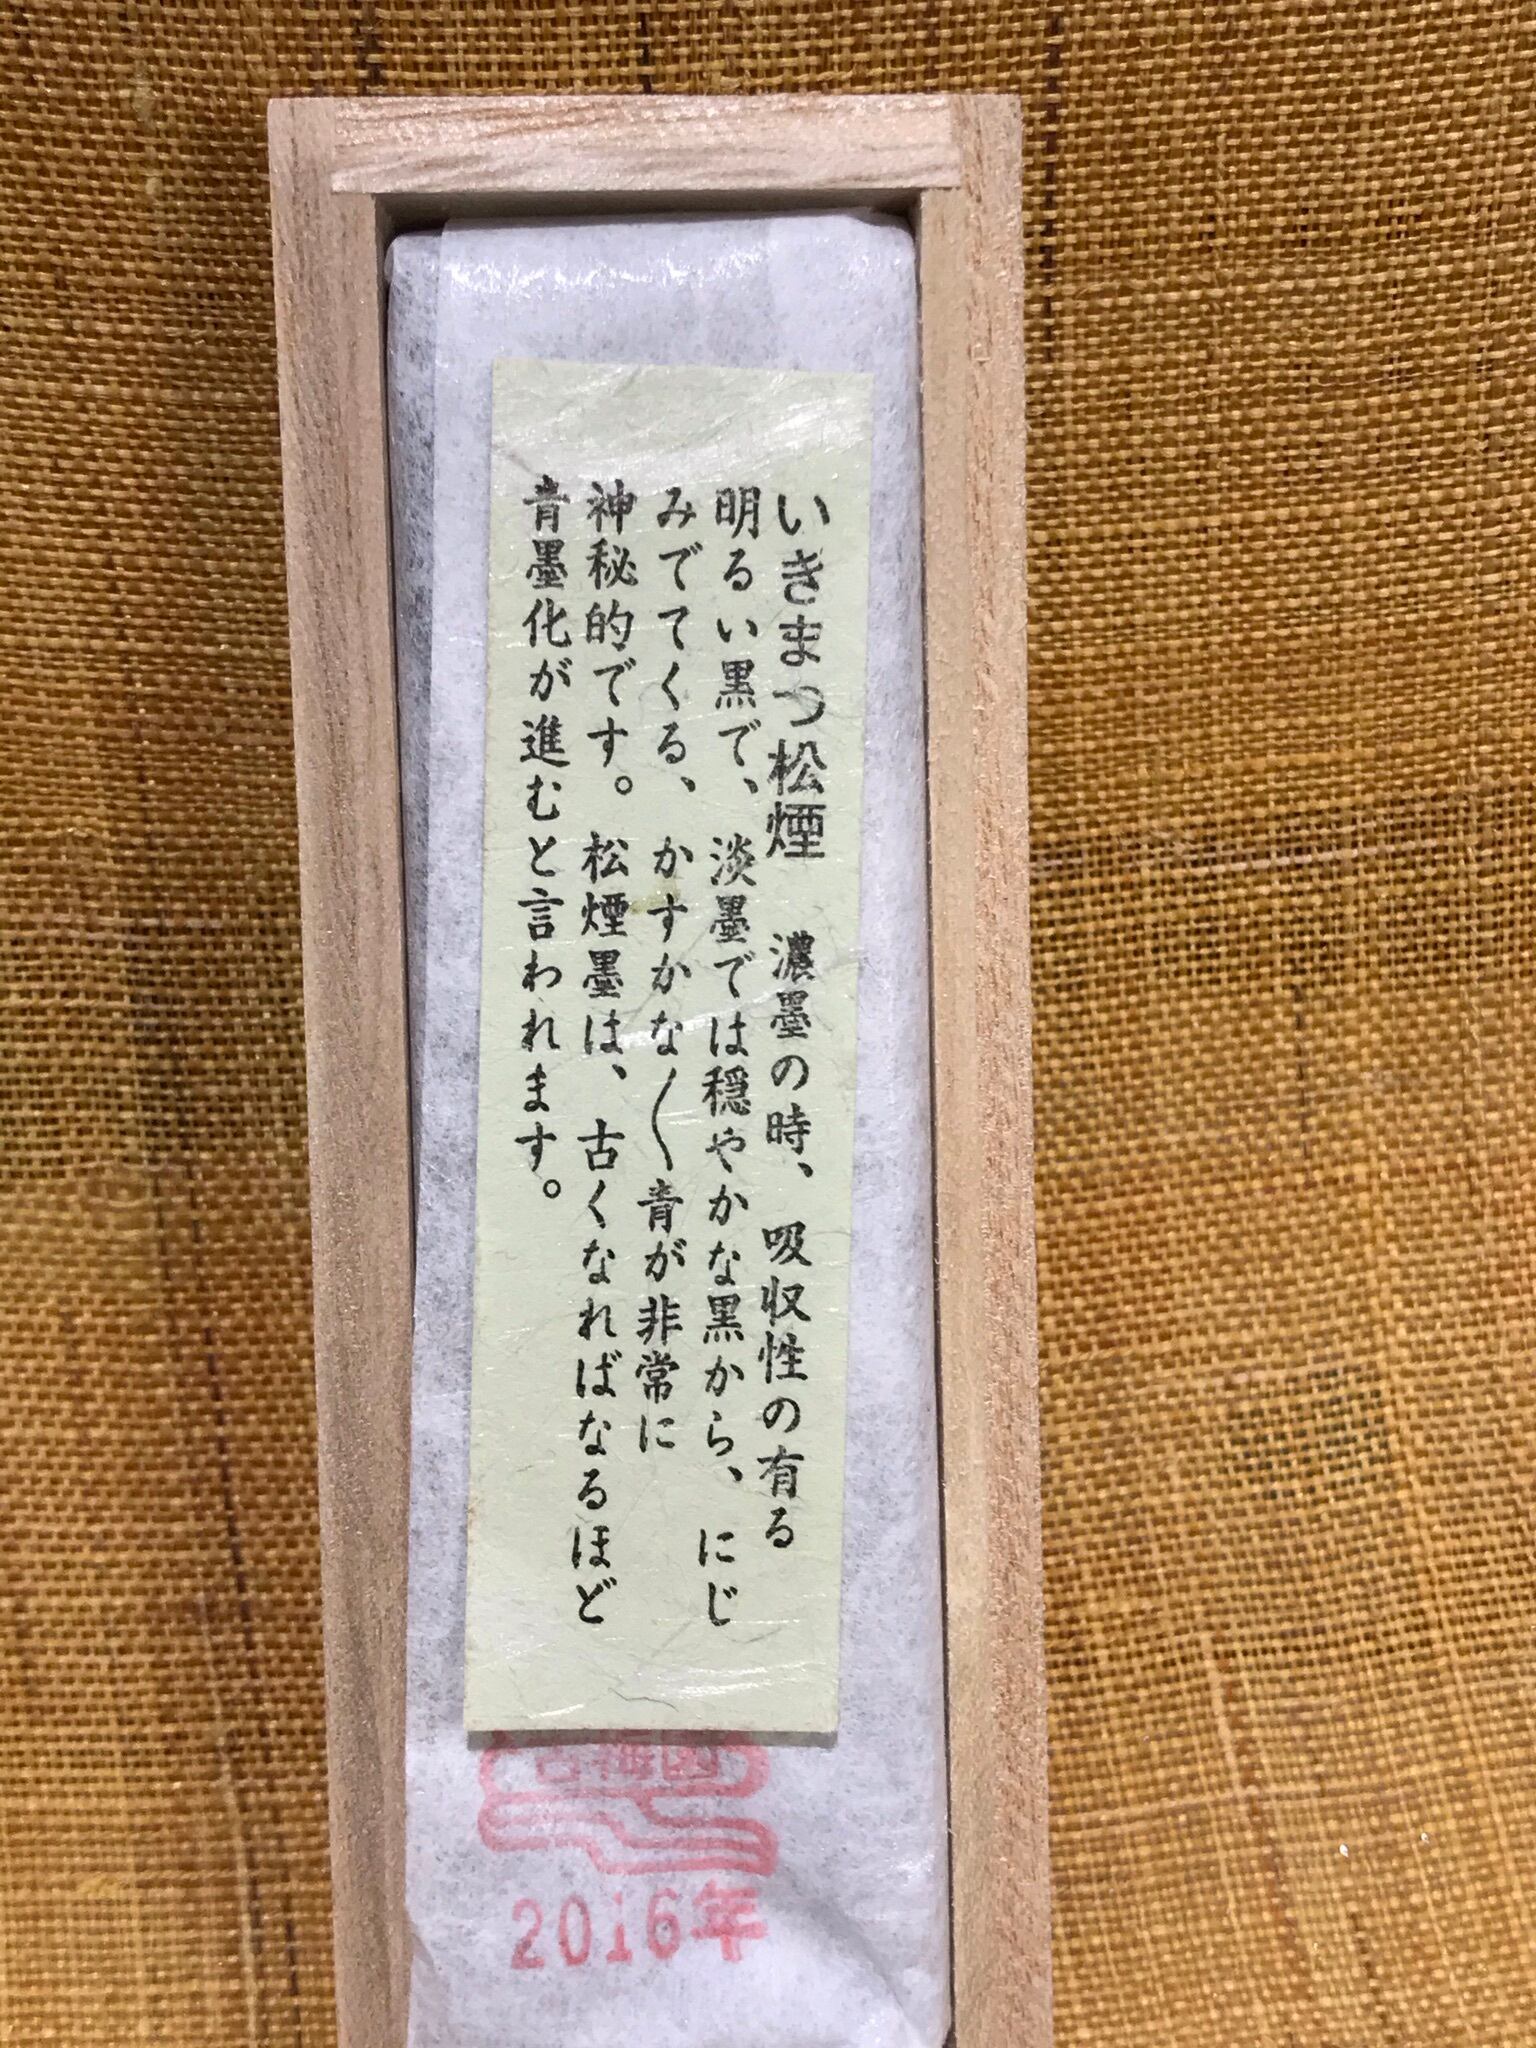 いきまつ松煙　濃墨の時、吸収性の有る
明るい黒で、淡墨では穏やかな黒から、にじ
みでてくる、かすかな〱青が非常に
神秘的です。松煙墨は、古くなればなるほど
青墨化が進むと言われます。
古梅園
2016年